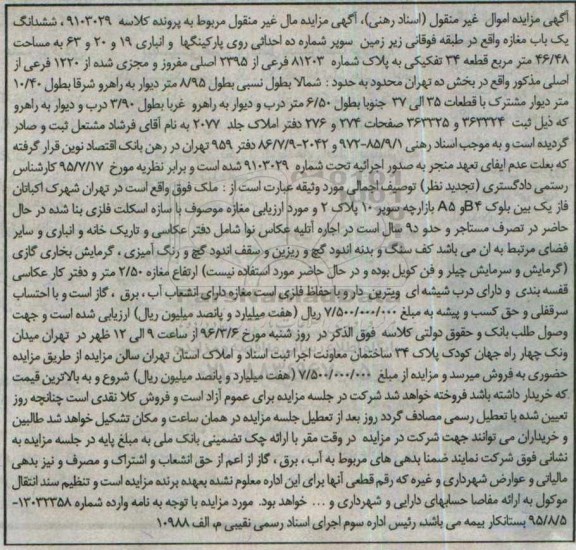 آگهی مزایده اموال غیر منقول (اسناد رهنی)، آگهی مزایده مال غیر منقول مربوط به پرونده کلاسه ۹۱۰۳۰۲۹ ، ششدانگ
یک باب مغازه واقع در طبقه فوقانی زیر زمین سوپر شماره ده احداثی روی پارکینگها و انباری ۱۹ و ۲۰ و ۶۳ به مساحت
۴۶/۴۸ متر مربع قطعه ۳۴ تفکیکی به پلاک شماره ۸۱۲۰۳ فرعی از ۲۳۹۵ اصلی مفروز و مجزی شده از ۱۲۲۰ فرعی از
اصلی مذکور واقع در بخش ده تهران محدود به حدود : شمالا بطول نسبی بطول ۸/۹۵ متر دیوار به راهرو شرقا بطول ۱۰/۴۰
متر دیوار مشترک با قطعات ۳۵ الی ۳۷ جنوبا بطول ۶/۵۰ متر درب و دیوار به راهرو غربا بطول ۳/۹۰ درب و دیوار به راهرو
که ذیل ثبت ۳۶۳۳۲۴ و ۳۶۳۳۲۵ صفحات ۲۷۴ و ۲۷۶ دفتر املاک جلد ۲۰۷۷ به نام آقای فرشاد مشتعل ثبت و صادر
گردیده است و به موجب اسناد رهنی ۸۵/۹/۱-۹۷۲ و ۲۰۴۲-۸۶/۷/۹ دفتر ۹۵۹ تهران در رهن بانک اقتصاد نوین قرار گرفته
که بعلت عدم ایفای تعهد منجر به صدور اجرائیه تحت شماره ۹۱۰۳۰۲۹ شده است و برابر نظریه مورخ ۹۵/۷/۱۷ کارشناس
رستمی دادگستری (تجدید نظر) توصیف اجمالی مورد وثیقه عبارت است از : ملک فوق واقع است در تهران شهرک اکباتان
فاز یک بین بلوک B۴ و A۵ بازارچه سوپر ۱۰ پلاک ۲ و مورد ارزیابی مغازه موصوف با سازه اسکلت فلزی بنا شده در حال
حاضر در تصرف مستاجر و حدود ۹ سال است در اجاره آتلیه عکاسی نوا شامل دفتر عکاسی و تاریک خانه و انباری و سایر
فضای مرتبط به آن می باشد کف سنگ و بدنه اندود گچ و ریزین و سقف اندود گچ و رنگ آمیزی ، گرمایش بخاری گازی
(گرمایش و سرمایش چیلر و فن کویل بوده و در حال حاضر مورد استفاده نیست) ارتفاع مغازه ۲/۵۰ متر و دفتر کار عکاسی
قفسه بندی و دارای درب شیشه ای ویترین دار و با حفاظ فلزی است مغازه دارای انشعاب آب ، برق ، گاز است و با احتساب
سرقفلی و حق کسب و پیشه به مبلغ ۷/۵۰۰/۰۰۰/۰۰۰ ریال (هفت میلیارد و پانصد میلیون ریال) ارزیابی شده است و جهت
وصول طلب بانک و حقوق دولتی کلاسه فوق الذکر در روز شنبه مورخ ۹۶/۳/۶ از ساعت ۹ الی ۱۲ ظهر در تهران میدان
ونک چهار راه جهان کودک پلاک ۳۴ ساختمان معاونت اجرا ثبت اسناد و املاک استان تهران سالن مزایده از طریق مزایده
حضوری به فروش میرسد و مزایده از مبلغ ۷/۵۰۰/۰۰۰/۰۰۰ (هفت میلیارد و پانصد میلیون ریال) شروع و به بالاترین قیمت
که خریدار داشته باشد فروخته خواهد شد شرکت در جلسه مزایده برای عموم آزاد است و فروش کلا نقدی است چنانچه روز
تعیین شده با تعطیل رسمی مصادف گردد روز بعد از تعطیل جلسه مزایده در همان ساعت و مکان تشکیل خواهد شد طالبین
و خریداران می توانند جهت شرکت در مزایده در وقت مقرر با ارائه چک تضمینی بانک ملی به مبلغ پایه در جلسه مزایده به
نشانی فوق شرکت نمایند ضمنا بدهی های مربوط به آب ، برق ، گاز از اعم از حق انشعاب و اشتراک و مصرف و نیز بدهی
مالیاتی و عوارض شهرداری و غیره که رقم قطعی آنها برای این اداره معلوم نشده بعهده برنده مزایده است و تنظیم سند انتقال
موکول به ارائه مفاصا حسابهای دارایی و شهرداری و ... خواهد بود. مورد مزایده با توجه به نامه وارده شماره ۱۳۰۳۲۳۵۸-
۹۵/۸/۵ بستانکار بیمه می باشد. رئیس اداره سوم اجرای اسناد رسمی نقیبی م. الف ۱۰۹۸۸